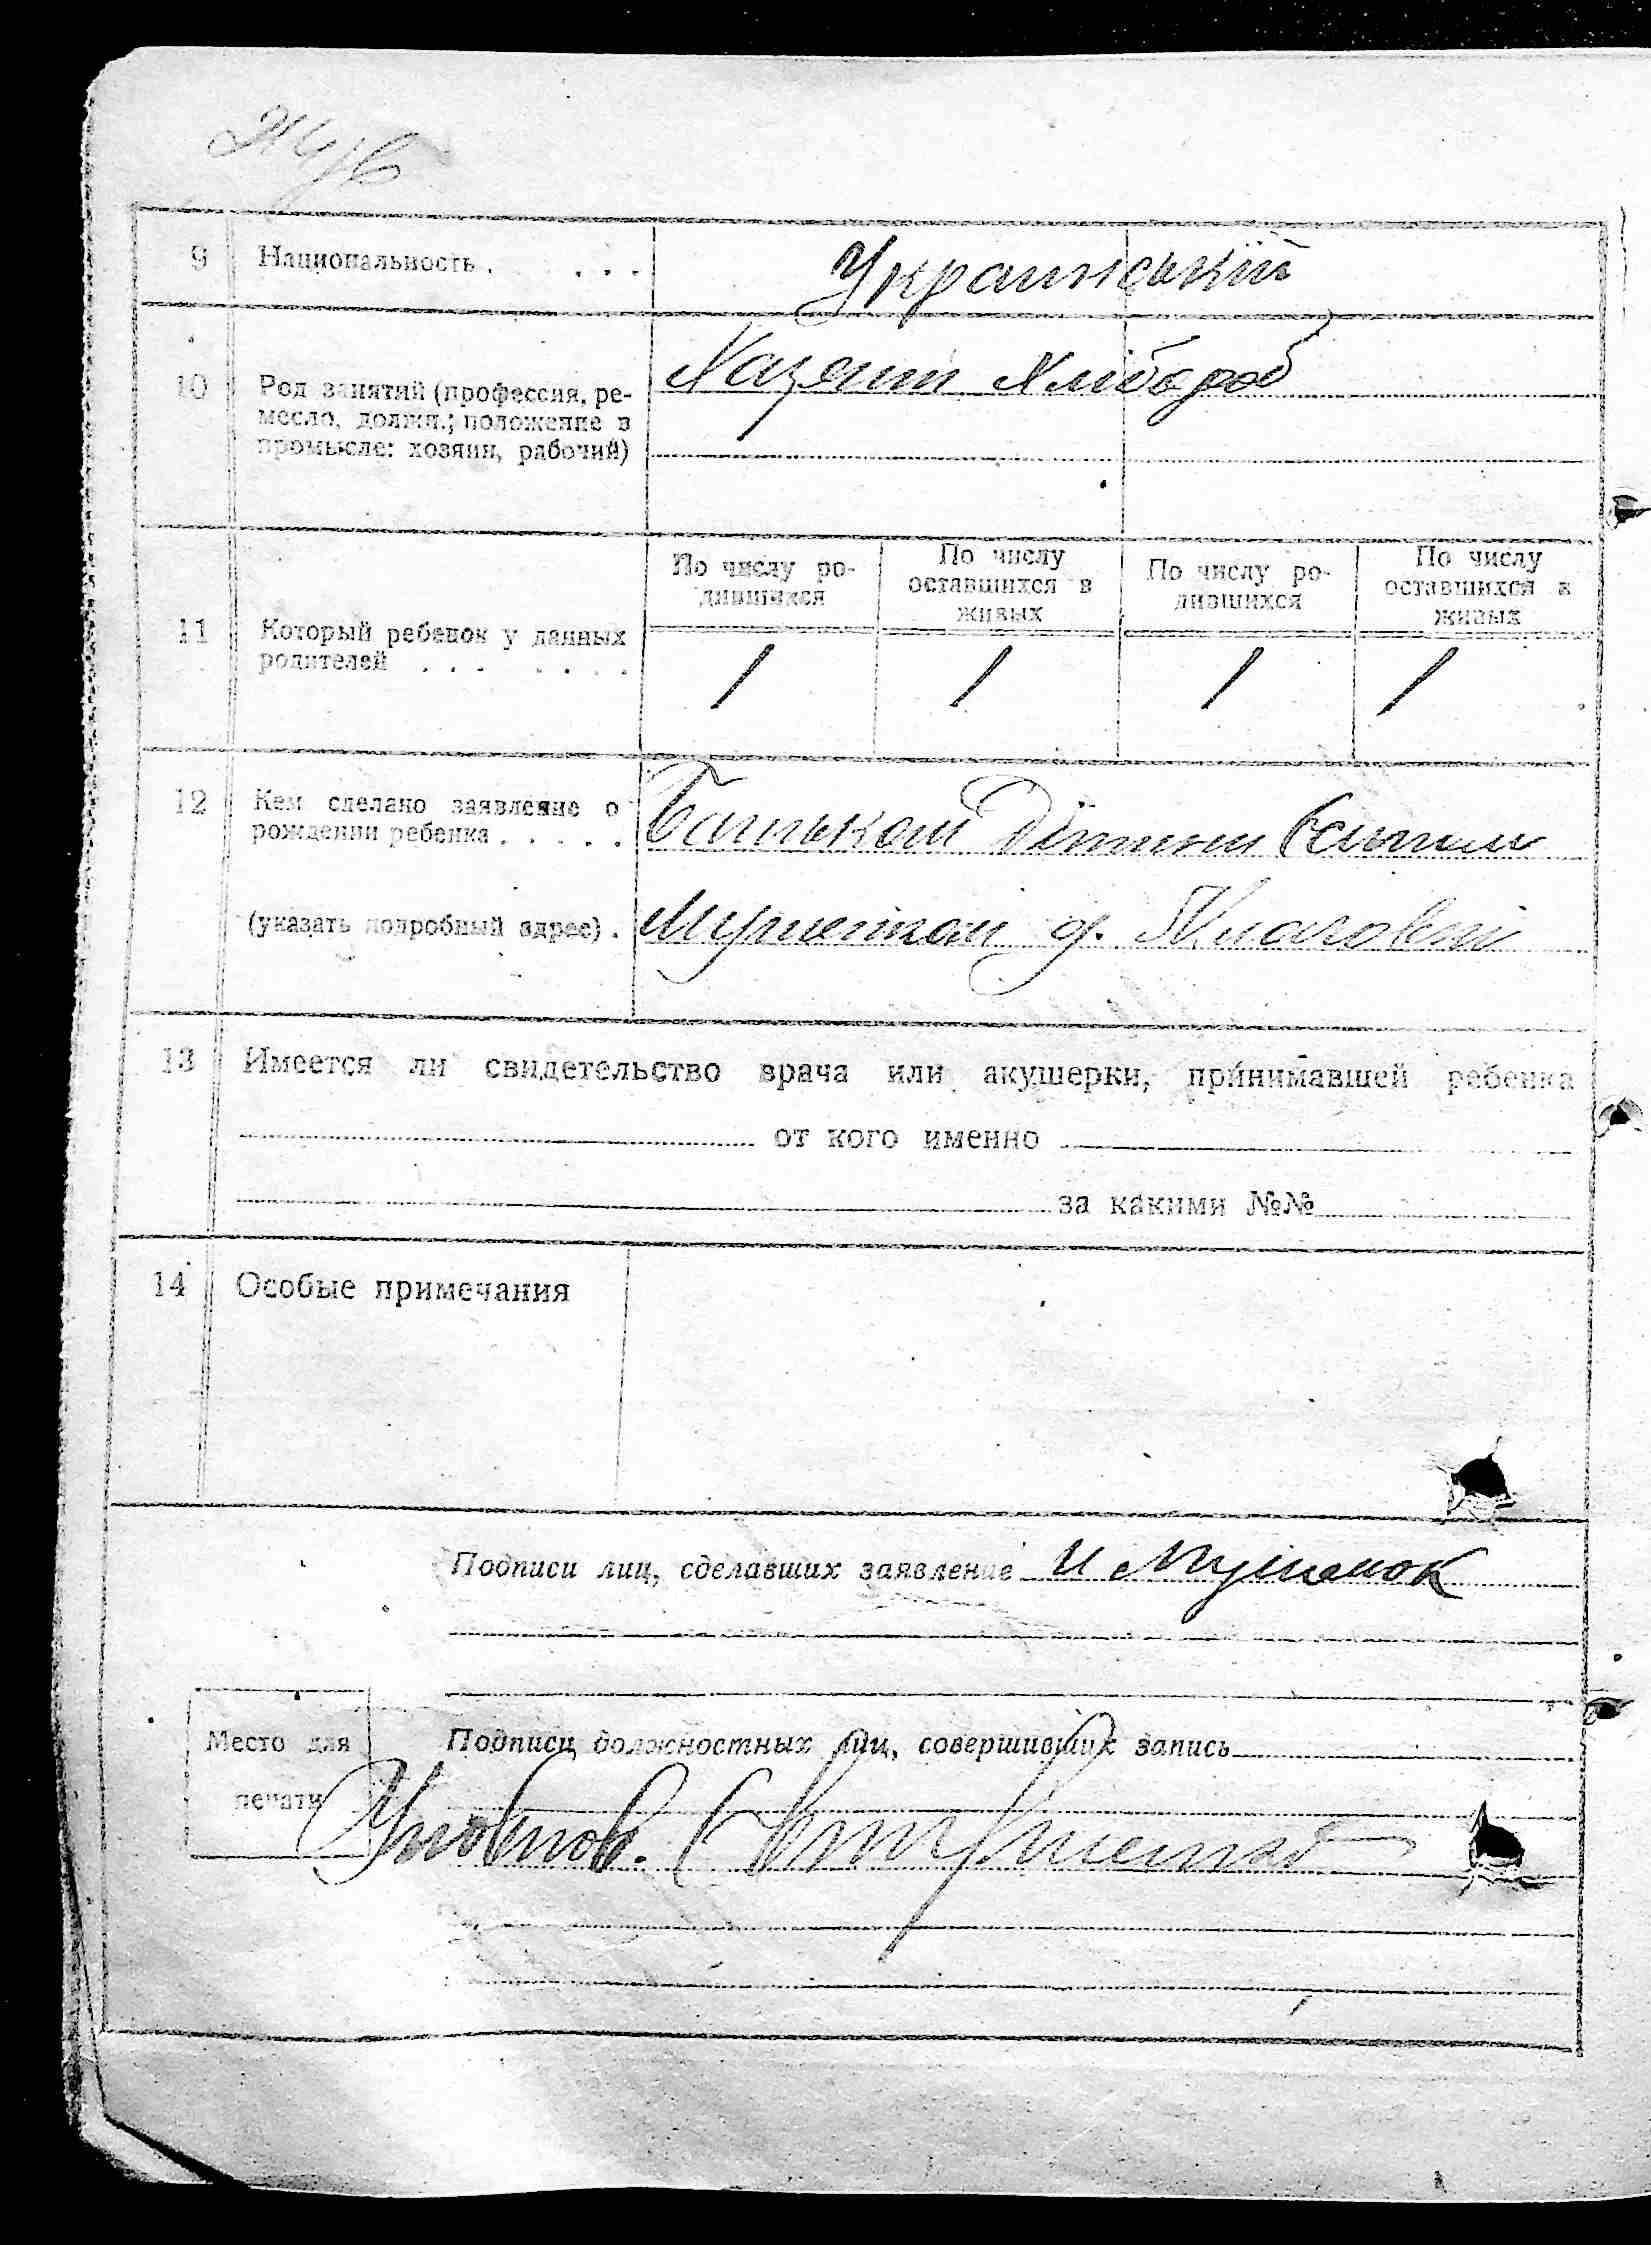 9 Национальность . . . . Український
10 Род занятий (профессия, ре- Хазяин Хлібороб
месло, должн.; положение в
промысле: хозяин, рабочий)
11 Который ребенок у данных
родителей . . . . . . .
По числу ро-
дившихся
По числу
оставшихся в
живых
По числу ро-
дившихся
По числу
оставшихся в
живых
1 1 1 1
12 Кем сделано заявление о Батьком Дитини
рождении ребенка . . . . .
(указать подробный адрес) .
13 Имеется ли свидетельство врача или акушерки, принимавшей ребенка
от кого именно
за какими №№
14 Особые примечания
Подписи лиц, сделавших заявление
Место для
печати
Подписи должностных лиц, совершивших запись